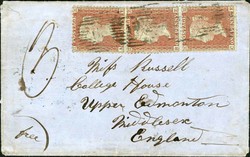 Miss Russell
College House
Upper Edmonton
Middlesex
England
free